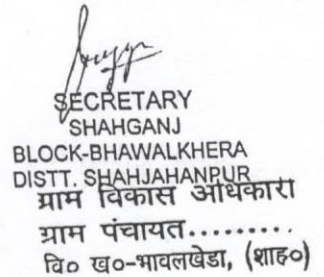 SECRETARY
SHAHGANJ
BLOCK-BHAWALKHERA
DISTT. SHAHJAHANPUR
ग्राम विकास अधिकारी
ग्राम पंचायत.........
वि० ख०-भावलखेडा, (शाह०)